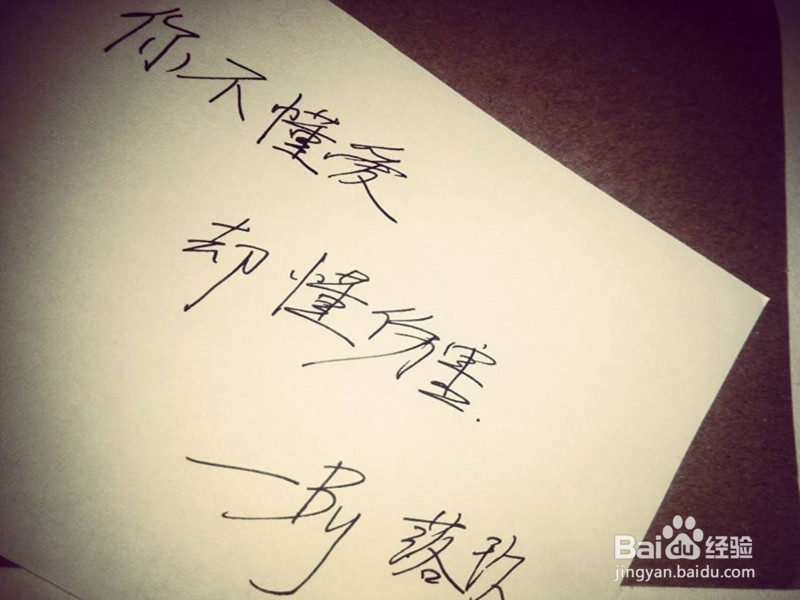 你不懂爱
却懂伤害.
——By 落玖
Baidu经验
jingyan.baidu.com